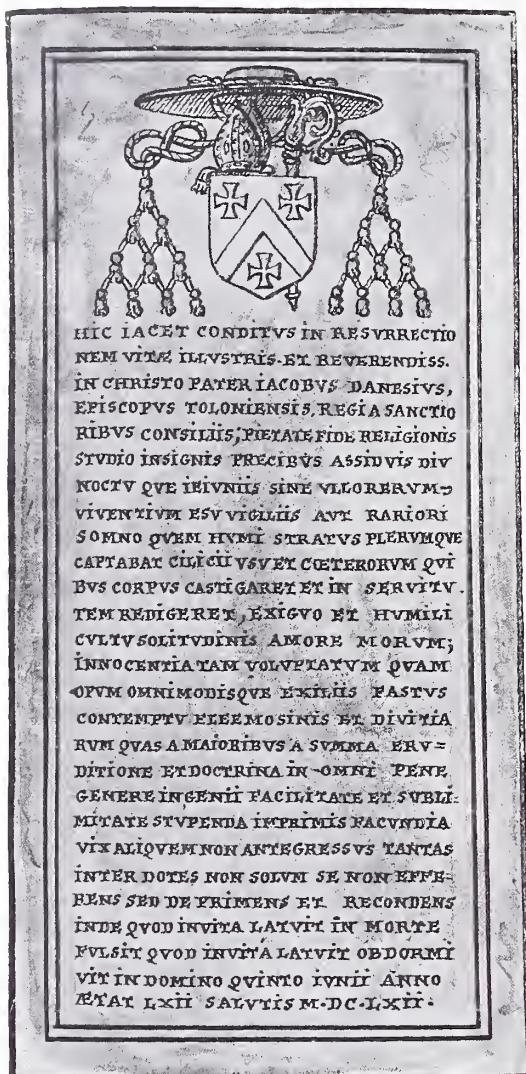 HIC IACET CONDITVS IN RESVRRECTIO
NEM VITÆ ILLVSTRIS. ET REVERENDISS.
IN CHRISTO PATER IACOBVS DANESIVS,
EPISCOPVS TOLONIENSIS, REGIA SANCTIO
RIBVS CONSILIIS, PIETATE FIDE RELIGIONIS
STVDIO INSIGNIS PRECIBVS ASSIDVIS DIV
NOCTV QVE IEIVNIIS SINE VLLORERVM
VIVENTIVM ESV VIGILIIS AVT RARIORI
SOMNO QVEM HVMI STRATVS PLERVMQVE
CAPTABAT CILICII VSVET CŒTERORVM QVI
BVS CORPVS CASTIGARET ET IN SERVITV.
TEM REDIGERET, EXIGVO ET HVMILI
CVLTV SOLITVDINIS AMORE MORVM;
INNOCENTIA TAM VOLVPTATVM QVAM
OPVM OMNIMODISQVE EXILIIS FASTVS
CONTEMPTV ELEEMOSINIS ET DIVITIA
RVM QVAS A MAIORIBVS A SVMMA ERV=
DITIONE ET DOCTRINA IN OMNI PENE
GENERE INGENII FACILITATE ET SVBLI-
MITATE STVPENDA IMPRIMIS FACVNDIA
VIX ALIQVEM NON ANTEGRESSVS TANTAS
INTER DOTES NON SOLVM SE NON EFFE-
RENS SED DEPRIMENS ET RECONDENS
INDE QVOD IN VITA LATVIT IN MORTE
FVLSIT QVOD IN VITA LATVIT OBDORMI
VIT IN DOMINO QVINTO IVNII ANNO
ÆTAT LXII SALVTIS M·DC·LXII·